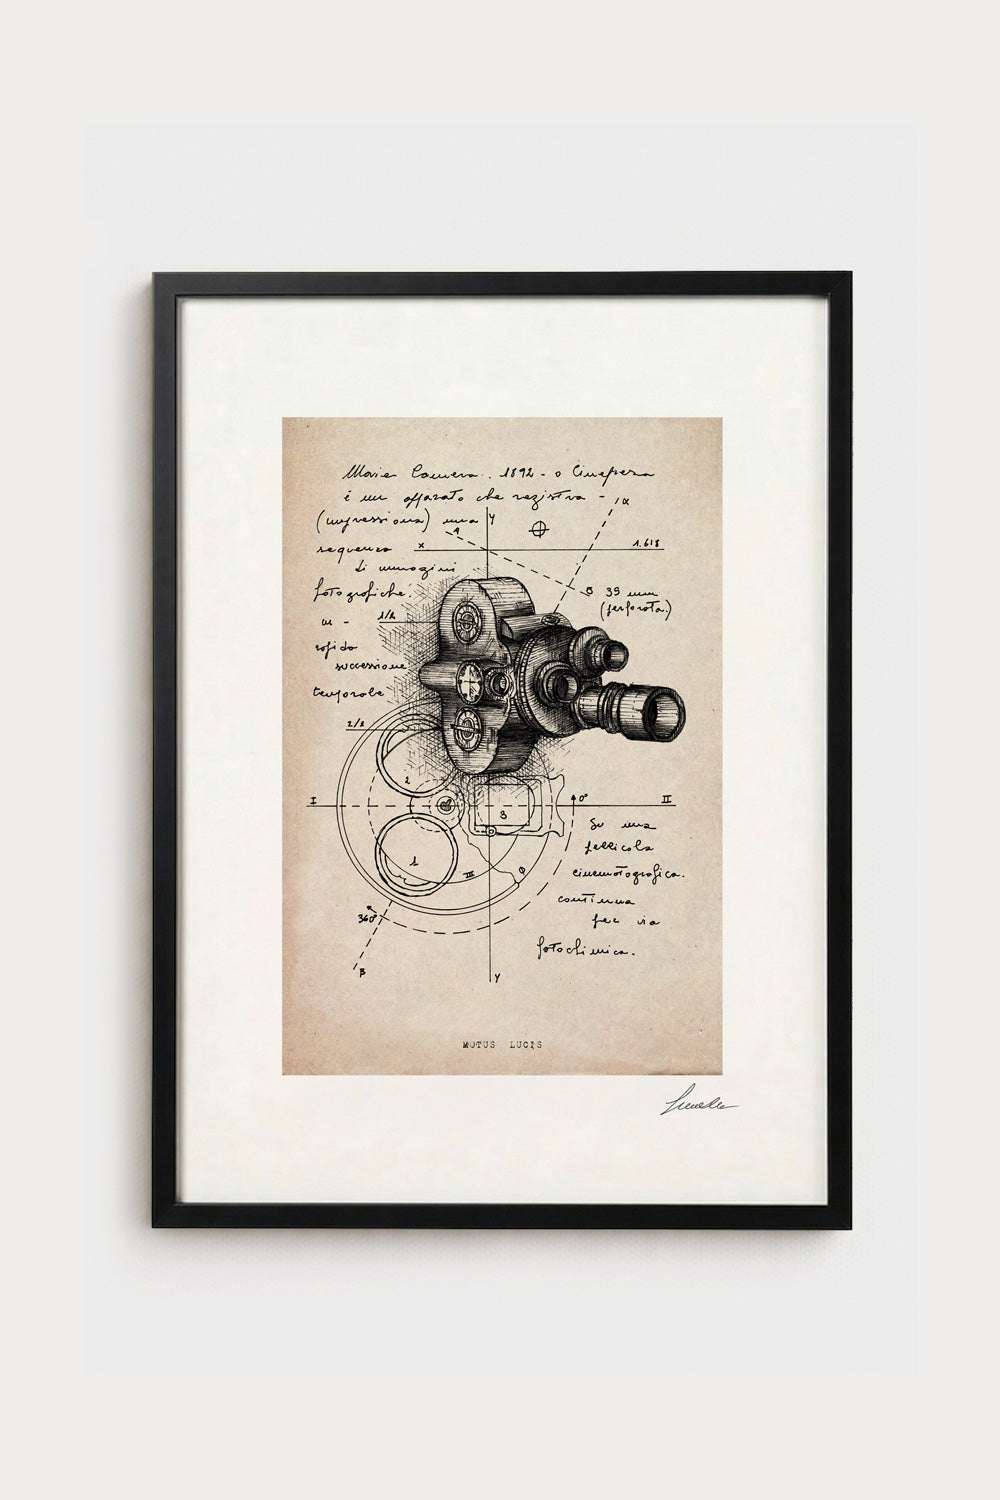 Movie Camera. 1892 - o Cinepresa
è un apparato che registra -
(impressiona) una
sequenza
di immagini
fotografiche.
in -
rapida
successione
temporale
α
Y
A
X
1.618
B
35 mm
(perforata.)
1/2
2/2
2
I
3
0°
II
1
III
Φ
Su una
pellicola
cinematografica.
continua
per via
fotochimica.
360°
β
Y
MOTUS LUCIS